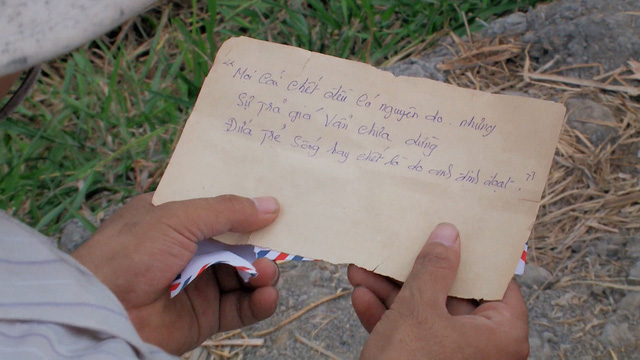 "Mọi cái chết đều có nguyên do . nhưng
Sự trả giá vẫn chưa dừng
Đứa trẻ sống hay chết là do anh định đoạt . "